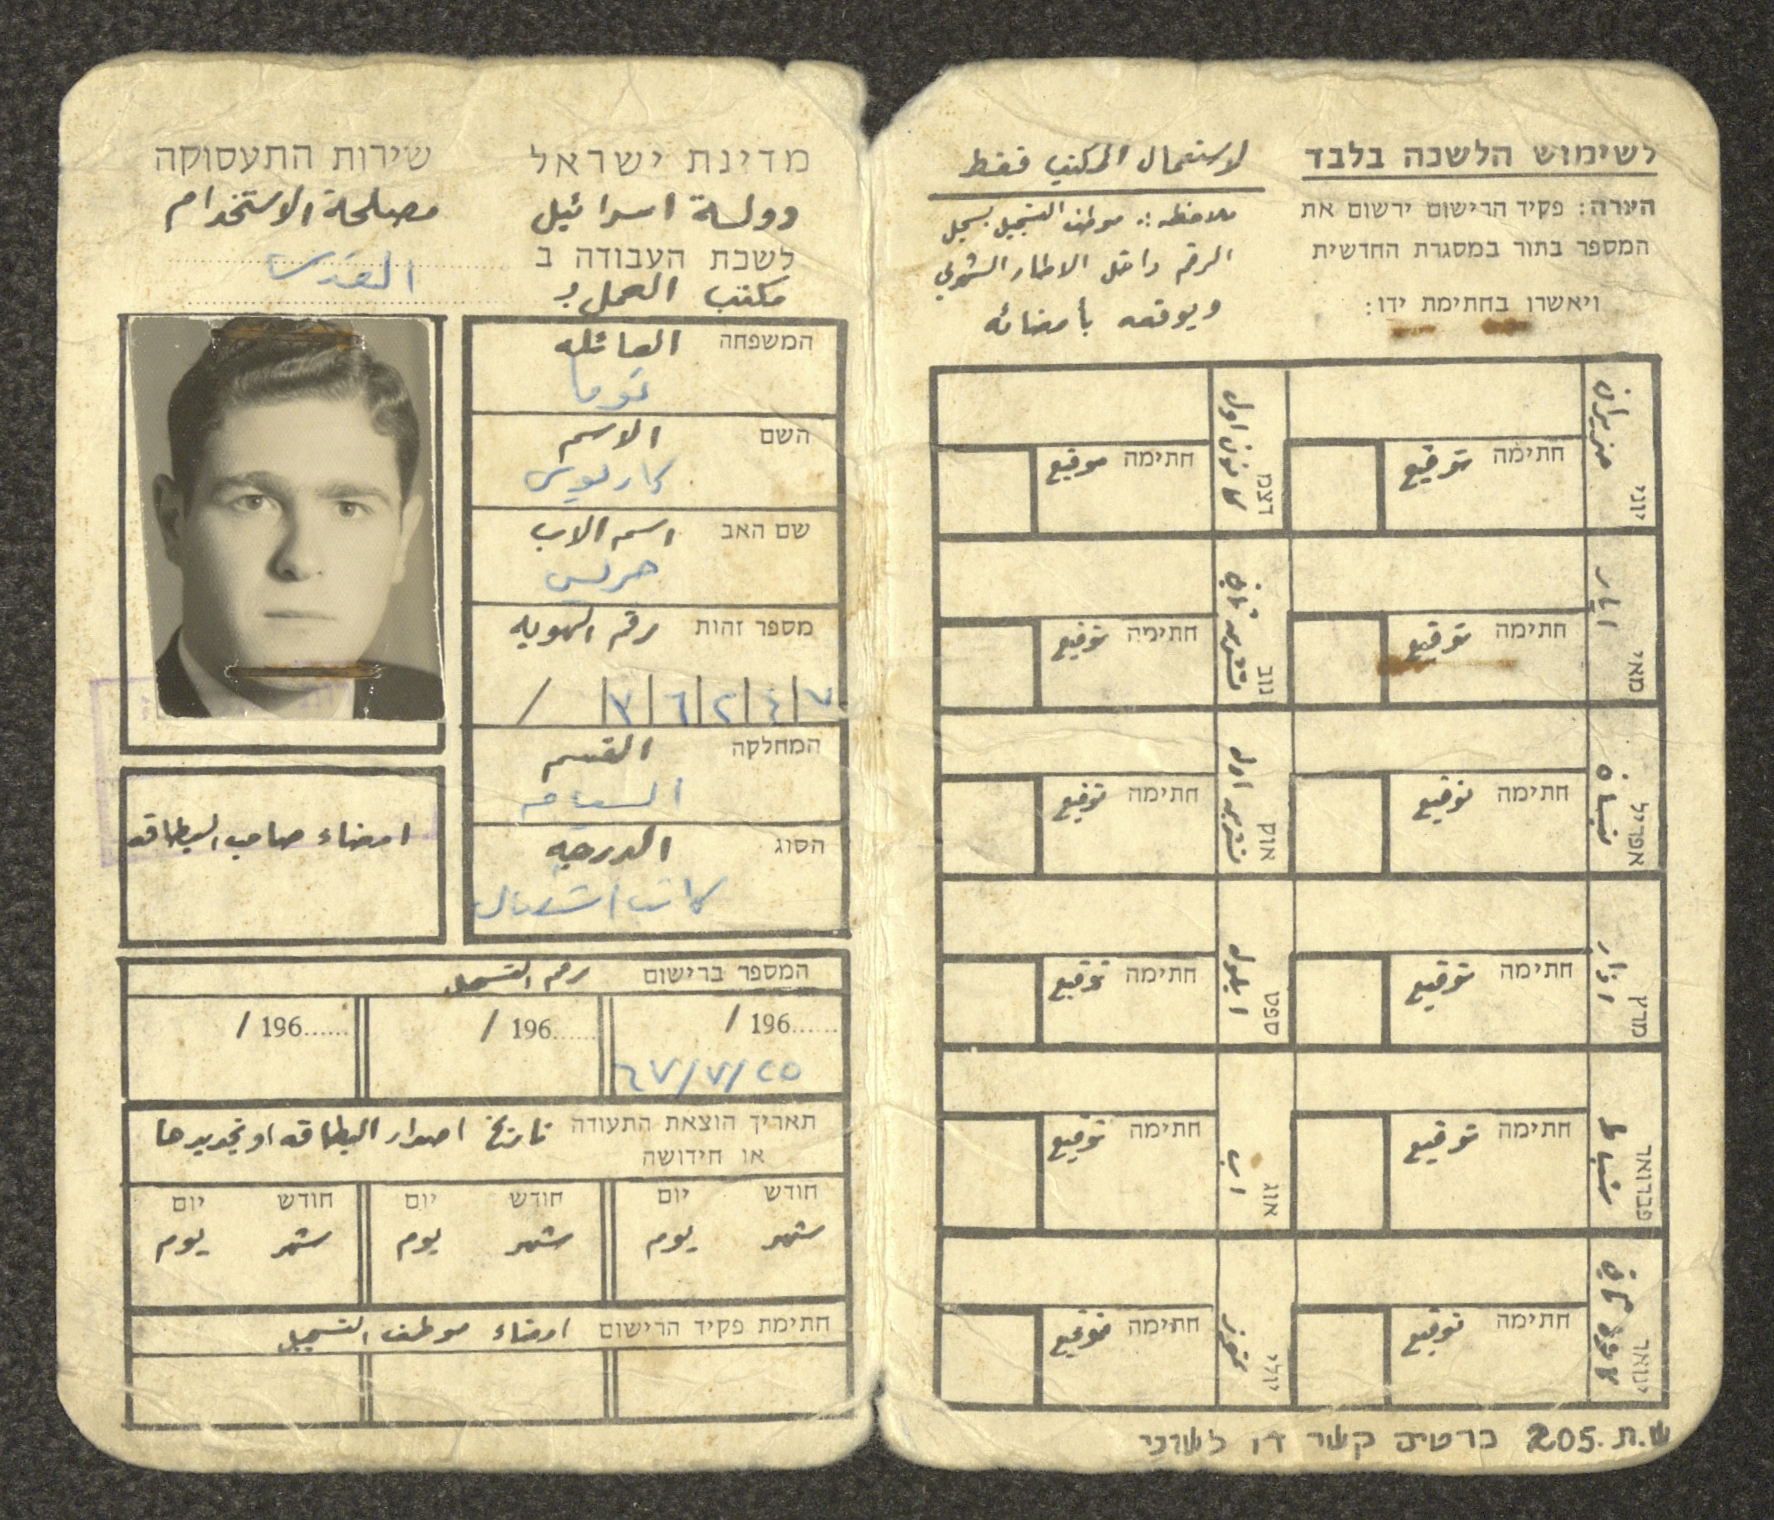 מדינת ישראל
שירות התעסוקה
دولة اسرائيل
مصلحة الاستخدام
לשכת העבודה ב
القدس
مكتب العمل ب
המשפחה العائله
توما
השם الاسم
كارلوس
שם האב اسم الاب
جريس
מספר זהות رقم الهويه
/
המחלקה القسم
הסוג الدرجه
امضاء صاحب البطاقه
המספר ברישום رقم التسجيل
196...... /
196...... /
196...... /
٦٧/٧/٢٥
תאריך הוצאת התעודה تاريخ اصدار البطاقه او تجديدها
או חידושה
חודש יום
חודש יום
חודש יום
شهر يوم
شهر يوم
شهر يوم
חתימת פקיד הרישום امضاء موظف التسجيل
לשימוש הלשכה בלבד
لاستعمال المكتب فقط
הערה: פקיד הרישום ירשום את
ملاحظه: موظف التسجيل يسجل
המספר בתור במסגרת החדשית
الرقم داخل الاطار الشهري
ויאשרו בחתימת ידו:
ويوقعه بأمضائه
יוני حزيران
חתימה توقيع
דצמ كانون اول
חתימה توقيع
מאי ايار
חתימה توقيع
נוב تشرين ثاني
חתימה توقيع
אפריל نيسان
חתימה توقيع
אוק تشرين اول
חתימה توقيع
מרץ اذار
חתימה توقيع
ספט ايلول
חתימה توقيع
פברואר شباط
חתימה توقيع
אוג اب
חתימה توقيع
ינואר كانون ثاني
חתימה توقيع
יולי تموز
חתימה توقيع
ש.ת. 205 כרטיס קשר דו לשוני